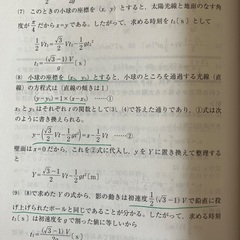 (7) このときの小球の座標を (x, y) とすると、太陽光線と地面のなす角
度が π/4 だから x=y である。したがって、求める時刻を t₁[s] として
1/2 Vt₁ = √3/2 Vt₁ − 1/2 gt₁²
∴ t₁ = (√3−1)V/g [s]
(8) 小球の座標を (x₀, y₀) とすると、小球のところを通過する光線 (直線)
の方程式は (直線の傾きは1)
(y−y₀)=1×(x−x₀) ……①
x₀ と y₀ はそれぞれ t の関数として(3)、(4)で答えた通りであり、①式は次
のように書きかえられる。
y−(√3/2 Vt−1/2 gt²)=x−1/2 Vt ……②
壁面は x=0 だから、これを②式に代入し、y を Y に置き換えて整理する
と
Y=(√3−1)/2 Vt−1/2 gt² [m]
(9) (8)で求めた Y の式から、影の動きは初速度 1/2(√3−1)V で鉛直に投
げ上げられたボールと同じであることが分かる。したがって、求める時刻
t₂[s] は初速度を g で割った値に等しいから